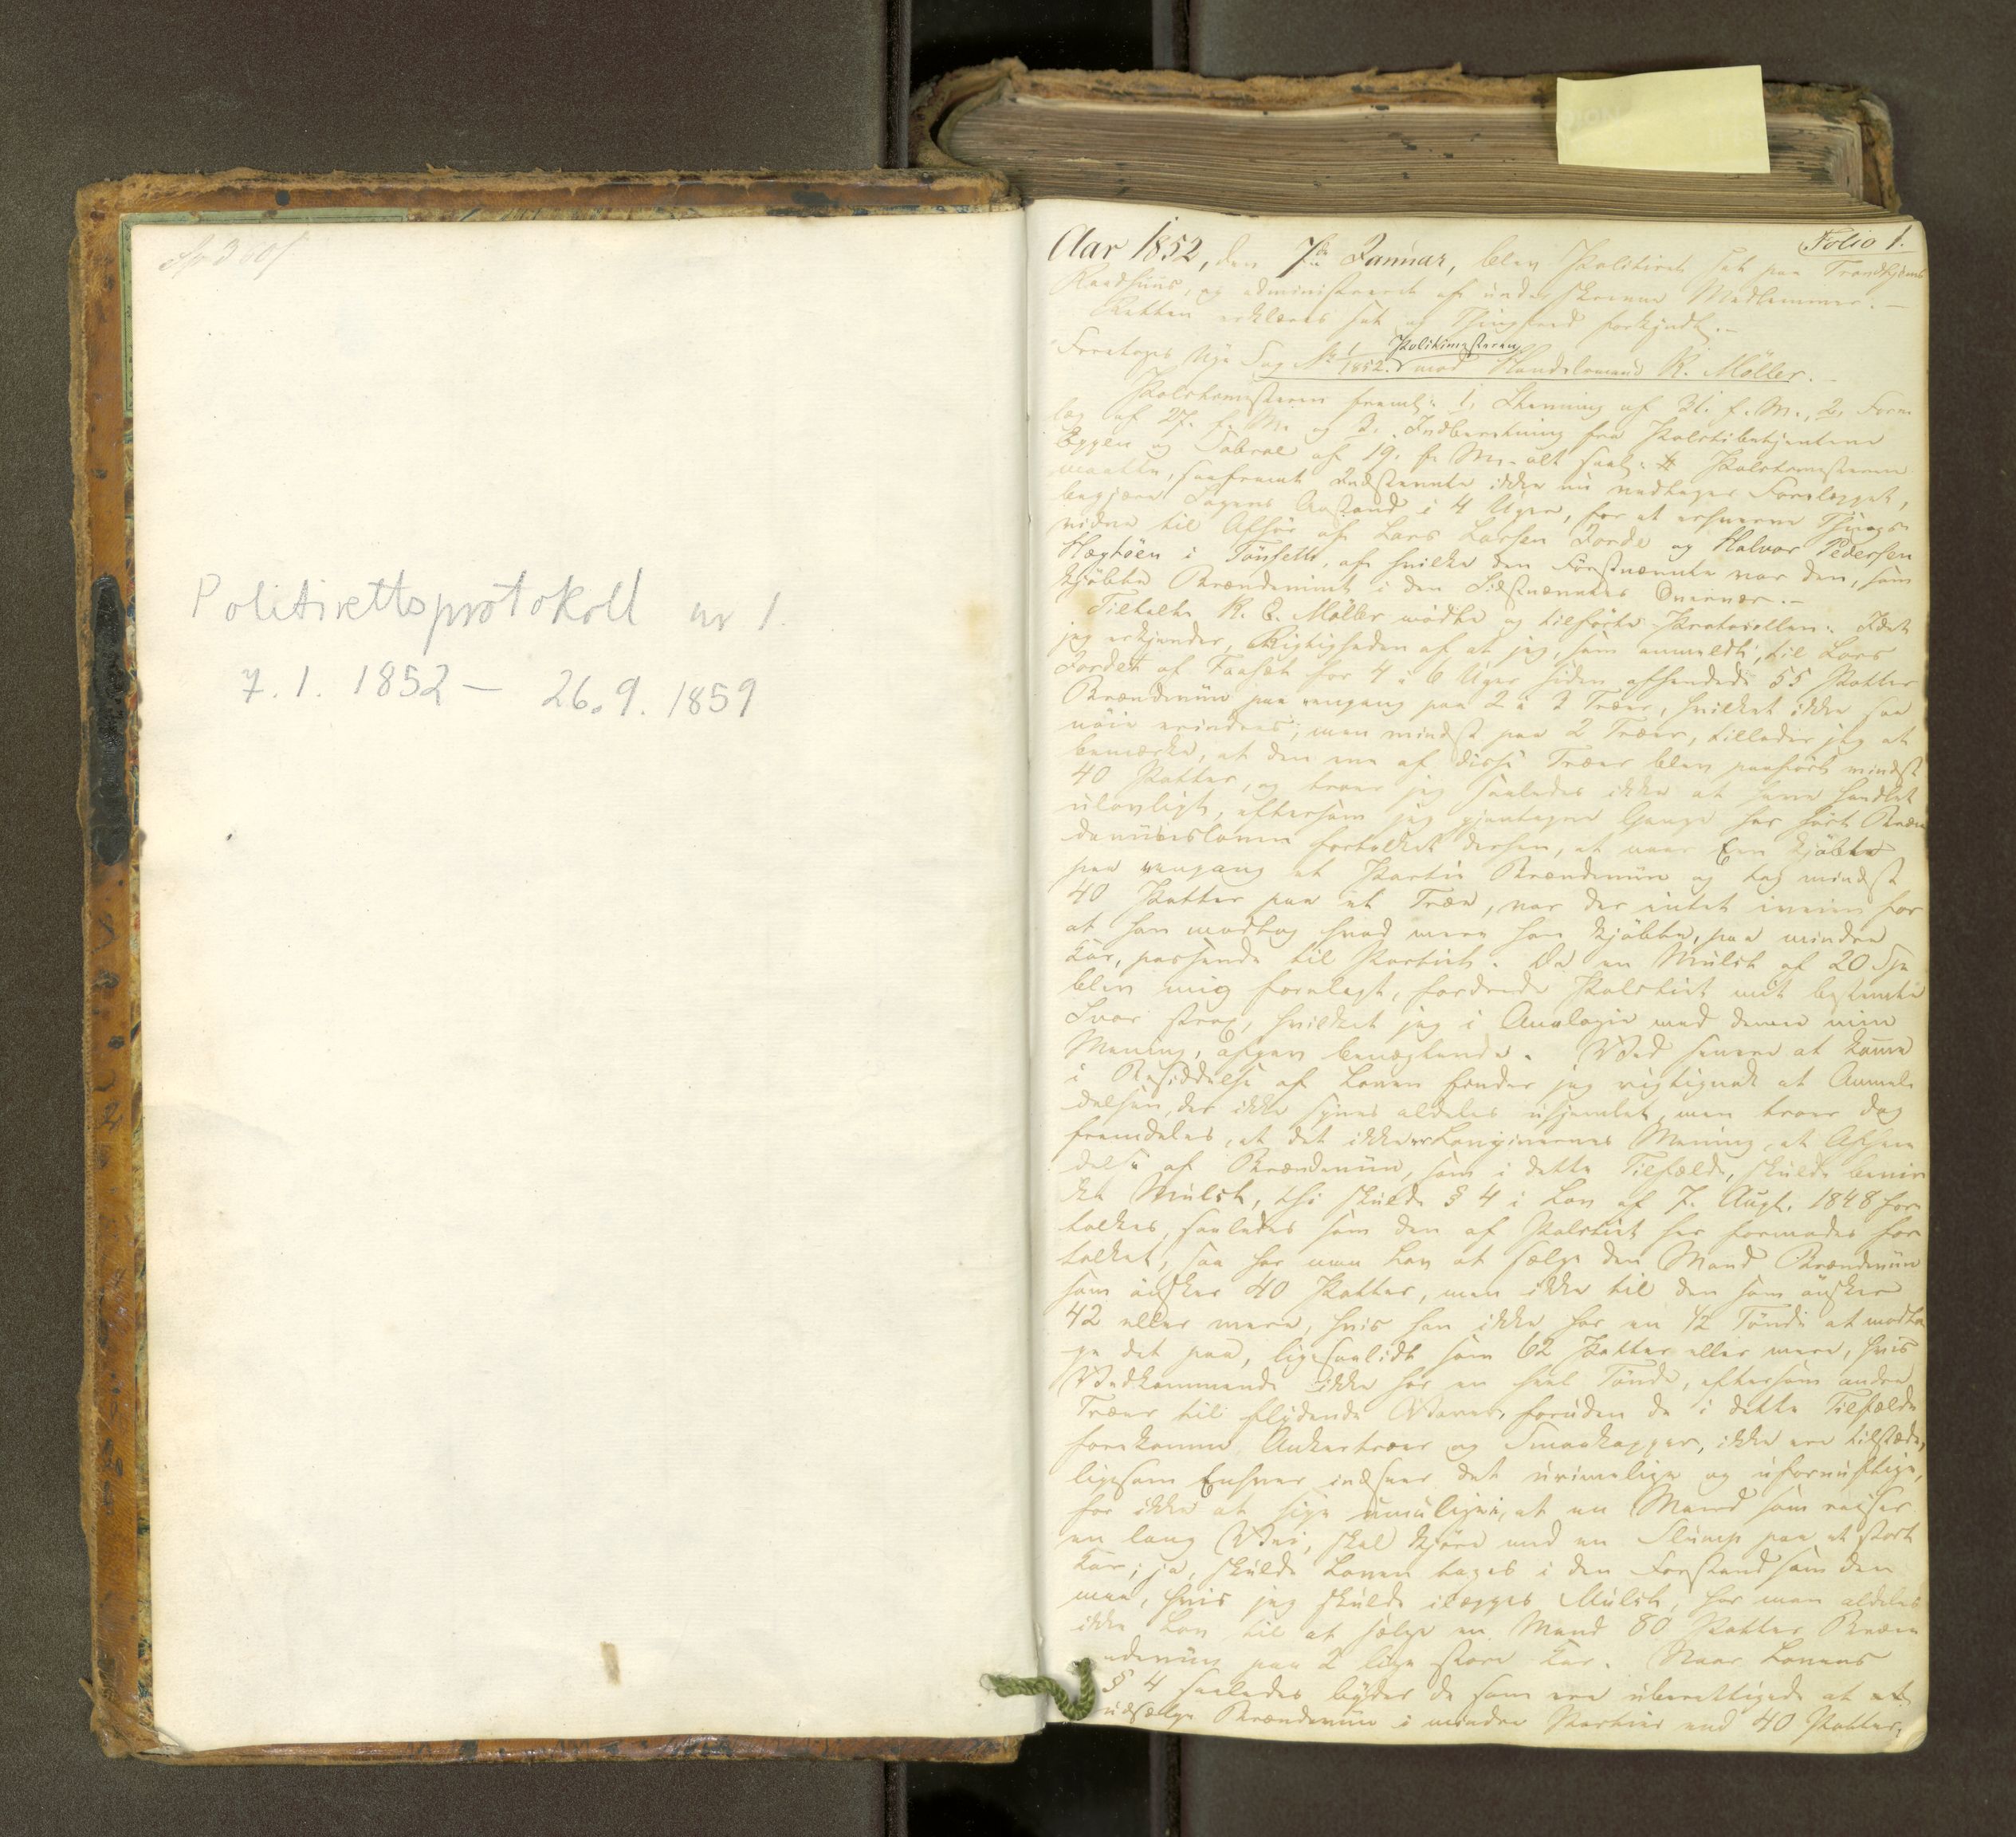 Politirettsprotokoll nr 1.
7.1. 1852 — 26.9. 1859
Folio 1.
Aar 1852, den 7de Januar, blev Politiret sat paa Trondhjems
Raadhuus, og administreret af underskrevne Medlemmer. —
Retten erklæres sat og Thingfred forkyndt. —
Foretages Nye Sag No 1/1852. Politimesteren mod Handelsmand R. Möller. —
Politimesteren freml: 1, Stevning af 31. f. M., 2, Fore-
læg af 27. f. M. og 3. Indberetning fra Politibetjentene
Eggen og af 19. f. M. alt saal: # Politimesteren
maatte, saafremt Indstevnte ikke nu vedtager Forelægget,
begjære Sagens Anstand i 4 Uger, for at erhverve Things-
vidne til Afhör af Lars Larsen Jorde og Halvor Pedersen
Hægtöen i Tönsett, af hvilke den Förstnævnte var den, som
kjöbte Brændevinet i den Sidstnævntes Overvær. —
Tiltalte R. C. Möller mödte og tilförte Protocollen: Idet
jeg erkjender Rigtigheden af at jeg, som anmeldt, til Lars
Jordet af Faaset for 4 à 6 Uger siden afhændede 55 Potter
Brændeviin paa engang paa 2 à 3 Træer, hvilket ikke saa
nöie erindres, men mindst paa 2 Træer, tillader jeg at
bemærke, at den ene af disse Træer blev paafört mindst
40 Potter, og troer jeg saaledes ikke at have handlet
ulovligt, eftersom jeg gjentagne Gange har hört Bræn-
deviinsloven fortolket derhen, at naar Een kjöbte
paa engang et Partie Brændeviin og tog mindst
40 Potter paa et Træe, var der intet iveien for
at han modtog hvad mere han kjöbte, paa mindre
Kar, passende til Partiet. Da en Mulct af 20 Spd
blev mig forelagt, fordrede Politiet mit bestemte
Svar strax, hvilket jeg i Analogie med denne min
Mening, afgav benægtende. Ved senere at komme
i Besiddelse af Loven finder jeg rigtignok at Anmel-
delsen, der ikke synes aldeles uhjemlet, men troer dog
fremdeles, at det ikke er Lovgivernes Mening, at Afhæn-
delse af Brændeviin, som i dette Tilfælde, skulde bevir-
ke Mulct, thi skulde § 4 i Lov af 7. Augt. 1848 for-
tolkes, saaledes som den af Politiet her formodes for-
tolket, saa har man Lov at sælge den Mand Brændeviin
som önsker 40 Potter, men ikke til den som önsker
42 eller mere, hvis han ikke har en 1/2 Tönde at modta-
ge det paa, ligesaalidt som 62 Potter eller mere, hvis
Vedkommende ikke har en heel Tönde, eftersom andre
Træer til flydende Varer, foruden de i dette Tilfælde
forekomne Ankertræer og Smaakagger, ikke ere tilstæde,
ligesom Enhver indseer det urimelige og ufornuftige,
for ikke at sige umulige i, at en Mand som reiser
en lang Vei, skal kjöre med en Slump paa et stort
Kar; ja, skulde Loven tages i den Forstand som den
maa, hvis jeg skulde ilægges Mulct, har man aldeles
ikke Lov til at sælge en Mand 80 Potter Bræn-
deviin paa 2 lige store Kar. Naar Lovens
§ 4 saaledes byder de som ere uberettigede at
udsælge Brændeviin i mindre Partier end 40 Potter,